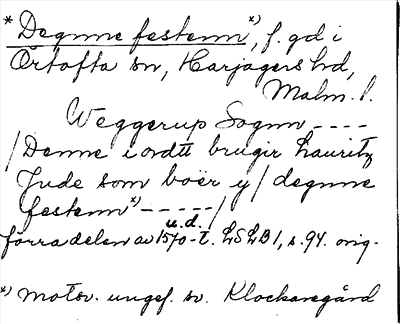 * Degnne festenn *), f. gd i
Örtofta sn, Harjagers hd,
Malm. l.
Weggerup Sognn ----
/Denne iordtt brugir Lauritz
Jude som boër y/ degnne
festenn*) -----/
u.d.
förra delen av 1570-t. LSLB1, s. 94. orig.
*) motsv. ungef. sv. Klockaregård